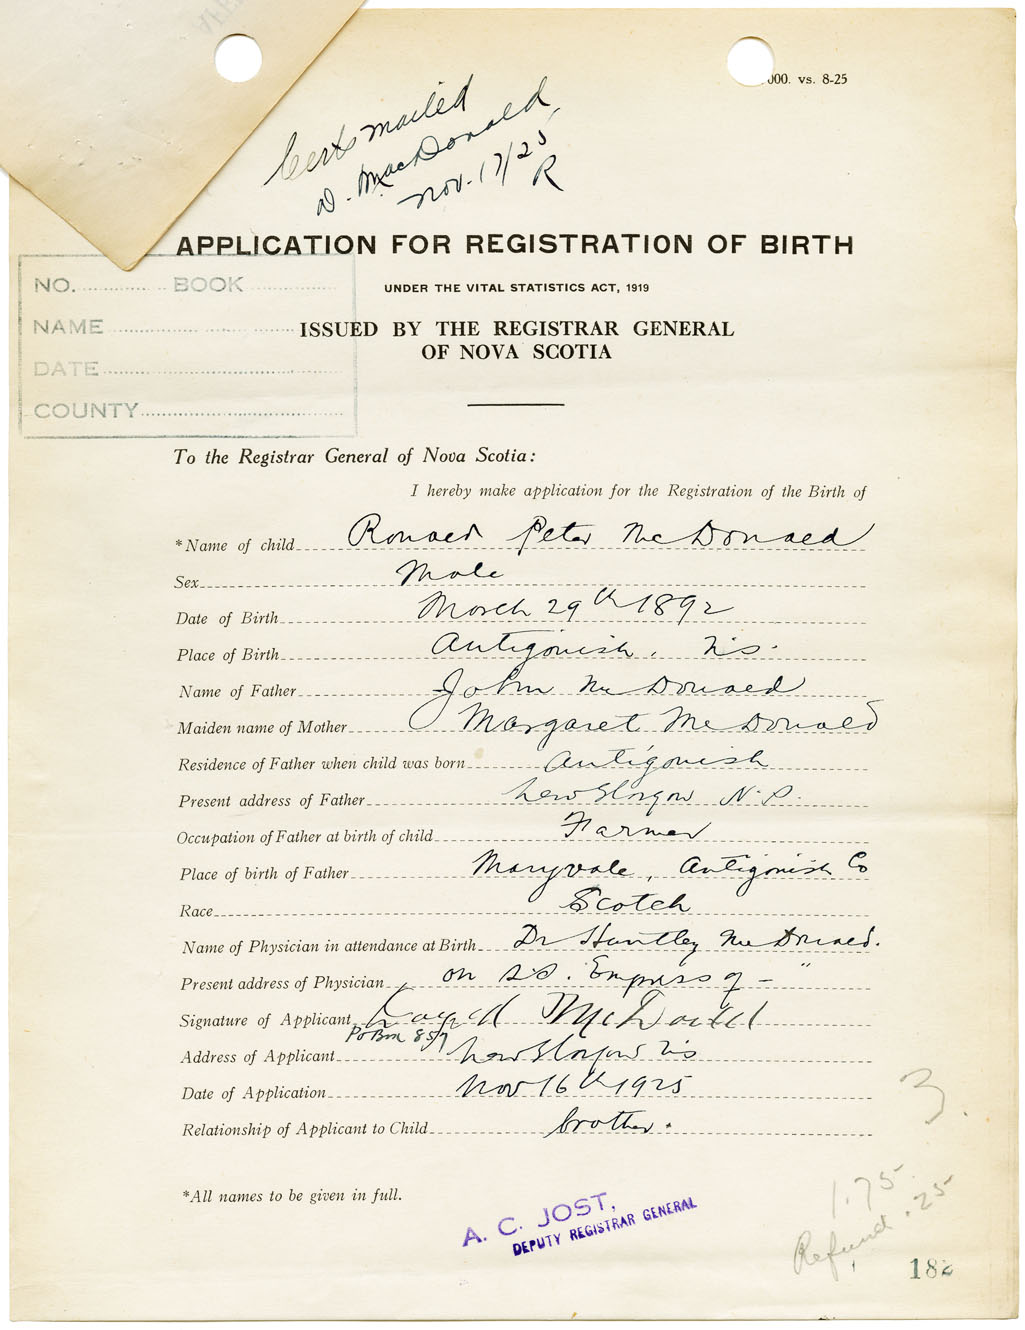 000. vs. 8-25
Certs mailed
D. MacDonald,
Nov. 17/25
R
APPLICATION FOR REGISTRATION OF BIRTH
UNDER THE VITAL STATISTICS ACT, 1919
ISSUED BY THE REGISTRAR GENERAL
OF NOVA SCOTIA
NO. BOOK
NAME
DATE
COUNTY
To the Registrar General of Nova Scotia:
I hereby make application for the Registration of the Birth of
*Name of child Ronald Peter McDonald
Sex Male
Date of Birth March 29th 1892
Place of Birth Antigonish, N.S.
Name of Father John McDonald
Maiden name of Mother Margaret McDonald
Residence of Father when child was born Antigonish
Present address of Father New Glasgow N.S.
Occupation of Father at birth of child Farmer
Place of birth of Father Maryvale, Antigonish Co
Race Scotch
Name of Physician in attendance at Birth Dr Huntley McDonald.
Present address of Physician on S.S. "Empress of — "
Signature of Applicant
PO Box 857
Address of Applicant New Glasgow N.S
Date of Application Nov 16th 1925
Relationship of Applicant to Child brother.
3.
*All names to be given in full.
A. C. JOST,
DEPUTY REGISTRAR GENERAL
1.75
Refund .25
182